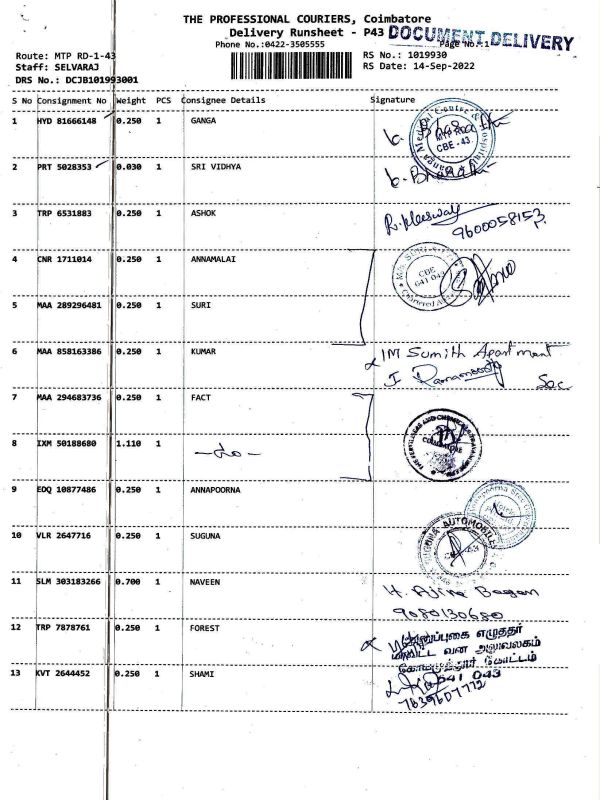 THE PROFESSIONAL COURIERS, Coimbatore
Delivery Runsheet - P43
DOCUMENT DELIVERY
Phone No.:0422-3505555
Page No.:1
Route: MTP RD-1-43
RS No.: 1019930
Staff: SELVARAJ
RS Date: 14-Sep-2022
DRS No.: DCJB101993001
S No Consignment No Weight PCS Consignee Details Signature
1 HYD 81666148 0.250 1 GANGA
MTP Rd
CBE-43.
2 PRT 5028353 0.030 1 SRI VIDHYA
3 TRP 6531883 0.250 1 ASHOK
9600058153
4 CNR 1711014 0.250 1 ANNAMALAI
CBE
641 043
5 MAA 289296481 0.250 1 SURI
6 MAA 858163386 0.250 1 KUMAR
1M Sumith Apartment
7 MAA 294683736 0.250 1 FACT
8 IXM 50188680 1.110 1 -do-
COIMBATORE
9 EDQ 10877486 0.250 1 ANNAPOORNA
10 VLR 2647716 0.250 1 SUGUNA
SUGUNA AUTOMOBILE
11 SLM 303183266 0.700 1 NAVEEN
9080130680
12 TRP 7878761 0.250 1 FOREST
எழுத்தர்
மாவட்ட வன அலுவலகம்
கோயமுத்தூர் கோட்டம்
641 043
13 KVT 2644452 0.250 1 SHAMI
7639607772